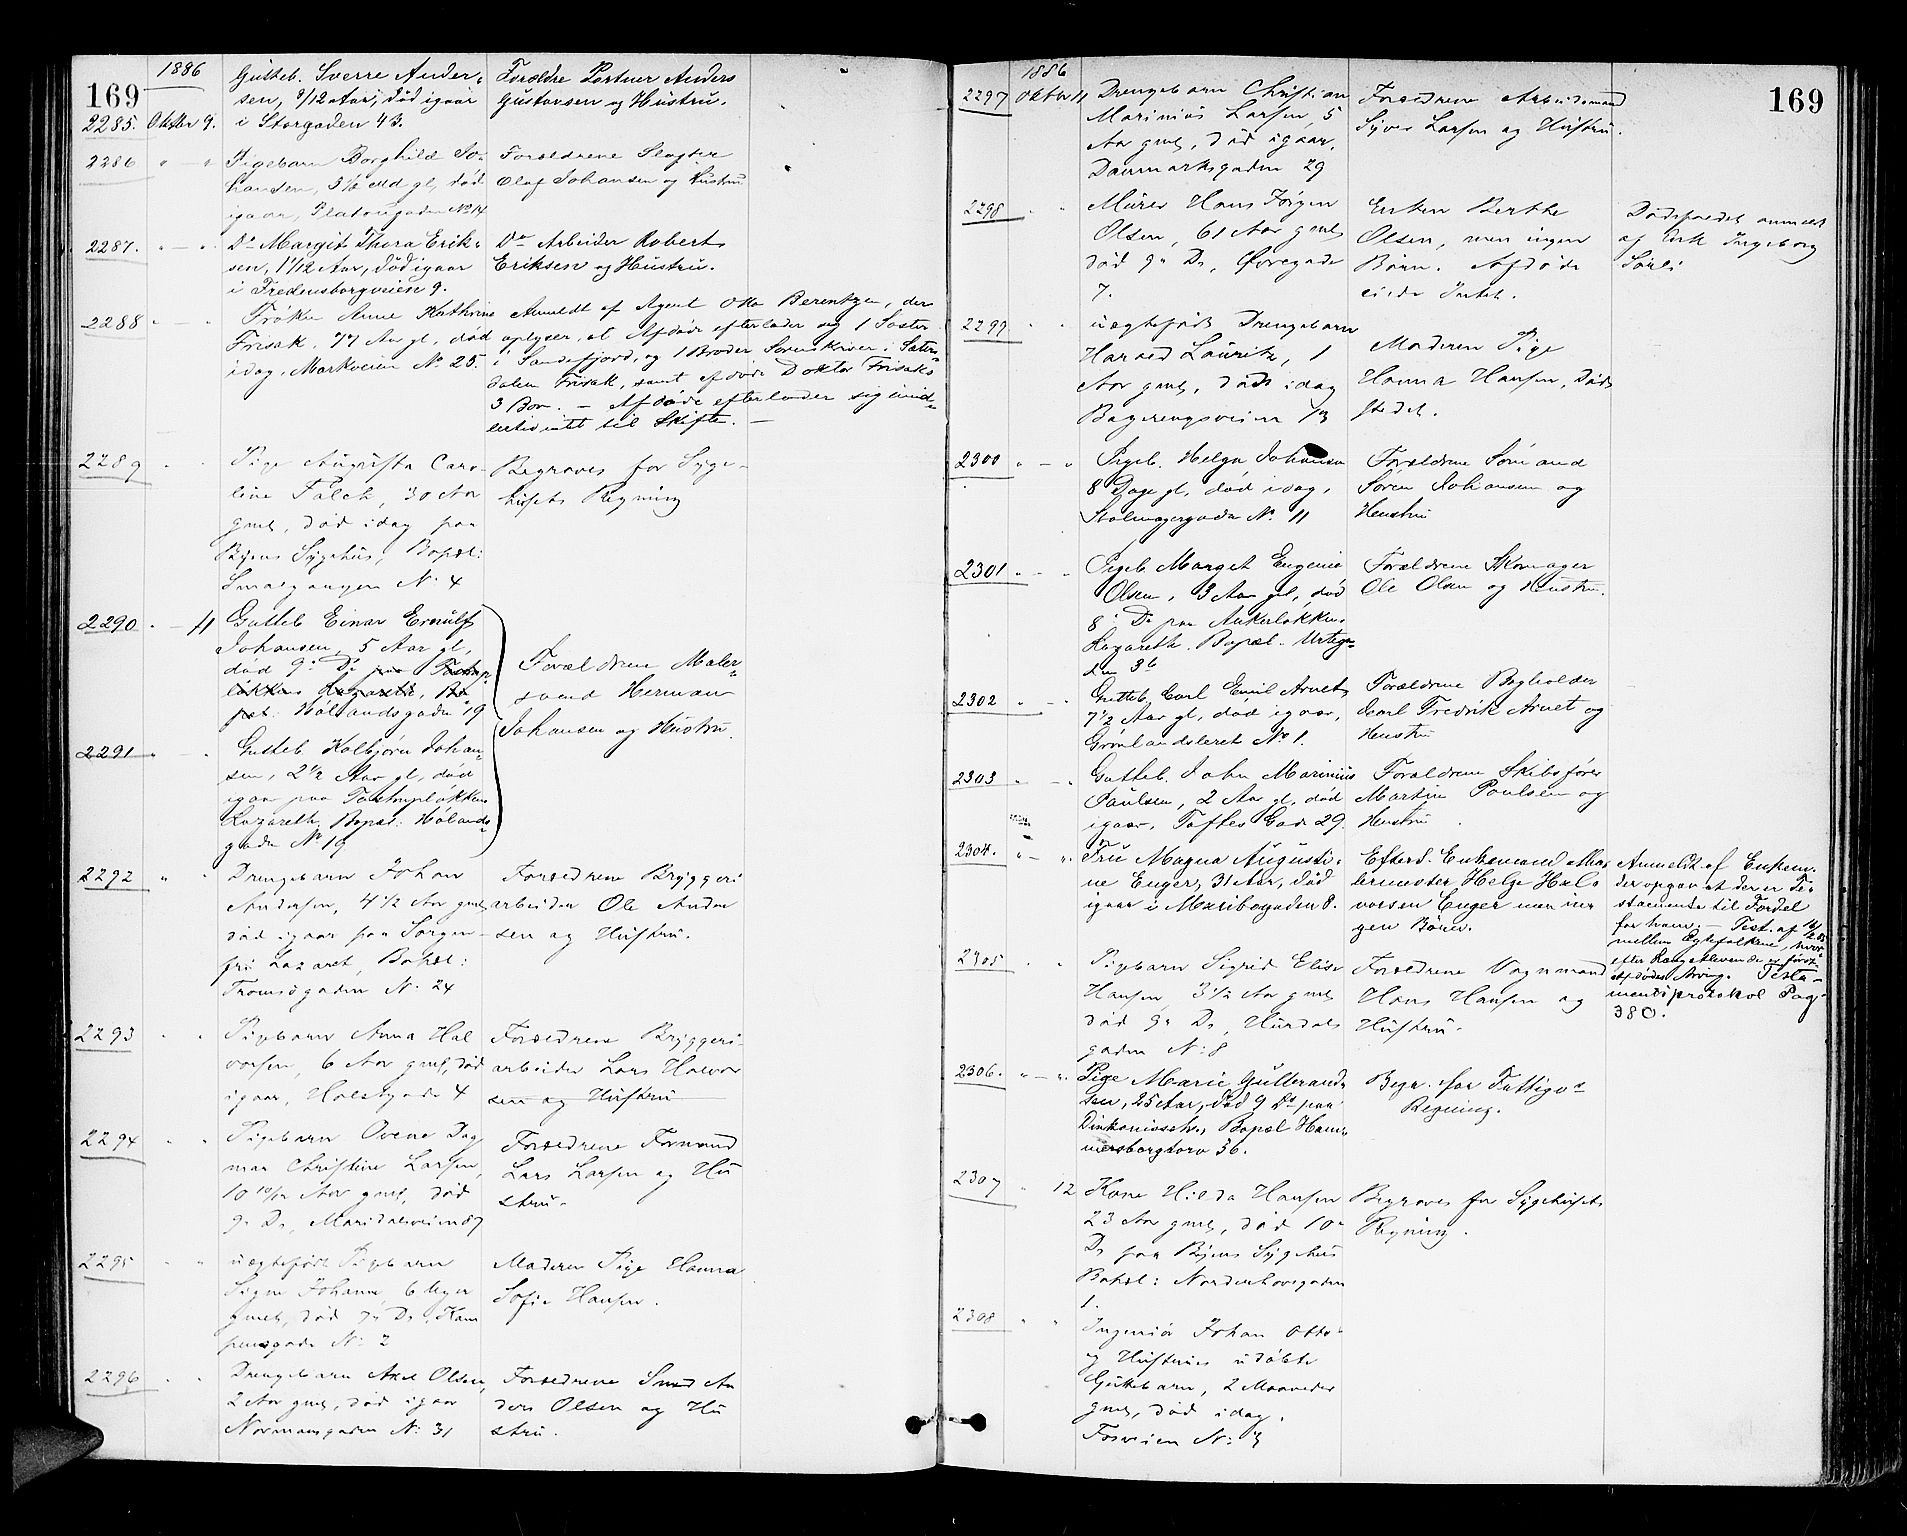 169
1886
2285. Oktbr 9.
Gutteb. Sverre Ander-
sen, 8/12 Aar, død igaar
i Storgaden 43.
Forældre Portner Anders
Gustavsen og Hustru.
2286 " - "
Pigebarn Borghild Jo-
hansen, 3 1/2 Md gl, død
igaar, Platousgaden No 14
Forældrene Slagter
Olaf Johansen og Hustru
2287. " - "
Do Margit Thora Erik-
sen, 1 1/12 Aar, død igaar
i Fredensborgveien 9.
Do Arbeider Robert
Eriksen og Hustru.
2288 " - "
Frøken Anne Kathrine
Frisak, 77 Aar gl, død
idag, Markveien No 25.
Anmeldt af Agent Otto Berentzen, der
oplyser, at Afdøde efterlader sig 1 Søster
i Sandefjord, og 1 Broder, Sorenskriver i Sæters-
dalen Frisak, samt afdøde Doktor Frisaks
3 Børn. - Afdøde efterlader sig imid-
lertid intet til Skifte. -
2289 " "
Pige Augusta Caro-
line Falck, 30 Aar
gml, død idag paa
Byens Sygehus, Bopæl:
Smalgangen No 4
Begraves for Syge-
husets Regning
2290 " - 11
Gutteb Einar Ernulf
Johansen, 5 Aar gl,
død 9de Ds paa Tostrup-
løkkens Lazareth, Bo-
pæl: Hølandsgaden 19
Forældrene Maler-
svend Herman
Johansen og Hustru.
2291 " - "
Gutteb Kolbjørn Johan-
sen, 2 1/2 Aar gl, død
igaar paa Tostrupløkkens
Lazareth, Bopæl: Hølands-
gaden No 19
2292 " "
Drengebarn Johan
Andersen, 4 1/2 Aar gml,
død igaar paa Sorgen-
fri Lazaret, Bopæl:
Tromsøgaden No 24
Forældrene Bryggeri
arbeider Ole Ander
sen og Hustru.
2293 " "
Pigebarn Anna Hal
vorsen, 6 Aar gml, død
igaar, Holstgade 4
Forældrene Bryggeri-
arbeider Lars Halvor
sen og Hustru
2294 " "
Pigebarn Ovene Dag
mar Christine Larsen,
10 10/12 Aar gml, død
9de Ds, Maridalsveien 87
Forældrene Formand
Lars Larsen og Hu
stru.
2295 " "
uægtefødt Pigebarn
Signe Johanne, 6 Uger
gml, død 7de Ds, Kam
pensgade No 2
Moderen Pige Hanna
Sofie Hansen.
2296 " "
Drengebarn Axel Olsen,
2 Aar gml, død igaar
Normansgaden No 31
Forældrene Smed An
ders Olsen og Hu
stru.
169
1886
2297 Oktbr 11
Drengebarn Christian
Marinius Larsen, 5
Aar gml, død igaar,
Danmarksgaden 29
Forældrene Arbeidsmand
Syver Larsen og Hustru.
2298 " "
Murer Hans Jørgen
Olsen, 61 Aar gml,
død 9de Ds, Øvregade
7.
Enken Berthe
Olsen, men ingen
Børn. Afdøde
eiede Intet.
Dødsfaldet anmeldt
af Enk Ingeborg
Sørli
2299 " "
uægtefødt Drengebarn
Harald Lauritz, 1
Aar gml, død idag
Bagerengsveien 13
Moderen Pige
Hanna Hansen, Døds
stedet.
2300 " - "
Pigeb. Helga Johansen
8 Dage gl, død idag,
Stolmagergaden No 11
Forældrene Sømand
Søren Johansen og
Hustru
2301 " - "
Pigeb Margit Eugenie
Olsen, 3 Aar gl, død
8de Ds paa Ankerløkkens
Lazareth. Bopæl. Urtega-
den 36
Forældrene Skomager
Ole Olsen og Hustru.
2302 " - "
Gutteb, Carl Emil Arnet,
7 1/2 Aar gl, død igaar,
Grønlandsleret No 1.
Forældrene Bogholder
Carl Fredrik Arnet og
Hustru
2303 " - "
Gutteb. John Marinius
Paulsen, 2 Aar gl, død
igaar, Toftes Gade 29.
Forældrene Skibsfører
Martin Paulsen og
Hustru.
2304. " - ".
Fru Magna Augusti-
ne Enger, 31 Aar, død
igaar i Maribogaden 8.
Efterl. Enkemand Ma-
lermester Helge Hal-
vorsen Enger men in-
gen Børn.
Anmeldt af Enkem.
der opgav at der er Te-
stamente til Fordel
for ham. - Test. af
mellem Ægtefolkene, hvor-
efter Længstlevende er først-
afdødes Arving. Testa-
mentsprotokol Pag.
380.
2305 " "
Pigebarn Sigrid Elise
Hansen 3 1/2 Aar gml
død 9de Ds, Hurdals
gaden No 8
Forældrene Vognmand
Hans Hansen og
Hustru.
2306. " - ".
Pige Marie Gulbrand-
sen, 25 Aar, død 9 Ds paa
Diakonisseh., Bopæl Ham-
mersborgtorv 36.
Begr. for Fattigv.s
Regning.
2307 " 12
Kone Hilda Hansen
23 Aar gml, død 10de
Ds paa Byens Sygehus
Bopæl: Norderhovsgaden
1.
Begraves for Sygehusets
Regning.
2308 " "
Ingeniør Johan Otto
og Hustrues udøbte
Guttebarn, 2 Maaneder
gml, død idag,
Fosveien No 13